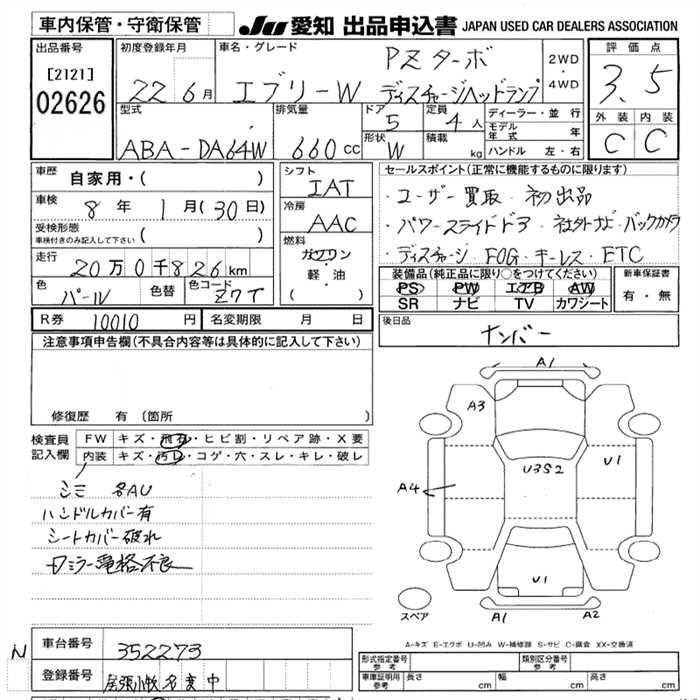 車内保管・守衛保管
JU 愛知 出品申込書 JAPAN USED CAR DEALERS ASSOCIATION
出品番号
[2121]
02626
初度登録年月
22 6月
車名・グレード
PZターボ
エブリーW ディスチャージヘッドランプ
2WD
・
4WD
評価点
3.5
外装 内装
C C
型式
ABA-DA64W
排気量
660 cc
ドア
5
定員
4人
形状
W
積載
kg
ディーラー・並行
モデル年式 年
ハンドル 左・右
車歴 自家用・( )
車検 8年 1月(30日)
受検形態
車検付きのみ記入して下さい ( )
走行 20万0千826km
色 パール 色替 色コード Z7T
シフト
IAT
冷房
AAC
燃料
ガソリン・
軽・油
( )
セールスポイント(正常に機能するものに限ります)
・ユーザー買取・初出品
・パワースライドドア・社外ナビ・バックカメラ
・ディスチャージ FOG・キーレス・ETC
装備品(純正品に限り○をつけてください)
PS PW エアB AW
SR ナビ TV カワシート
新車保証書
有・無
R券 10010円 名変期限 月 日
後日品
ナンバー
注意事項申告欄(不具合内容等は具体的に記入して下さい)
修復歴 有(箇所 )
検査員記入欄
FW キズ・飛石・ヒビ割・リペア跡・X要
内装 キズ・汚レ・コゲ・穴・スレ・キレ・破レ
シミ 各AU
ハンドルカバー有
シートカバー破れ
ロミラー電格不良
A1
A3
U3S2
U1
A4
U1
A1 A2
スペア
A-キズ E-エクボ U-凹み W-補修跡 S-サビ C-腐食 XX-交換済
N
車台番号 352273
登録番号
形式指定番号
参考
類別区分番号
参考
車庫証明用
参考
長さ cm 幅 cm 高さ cm